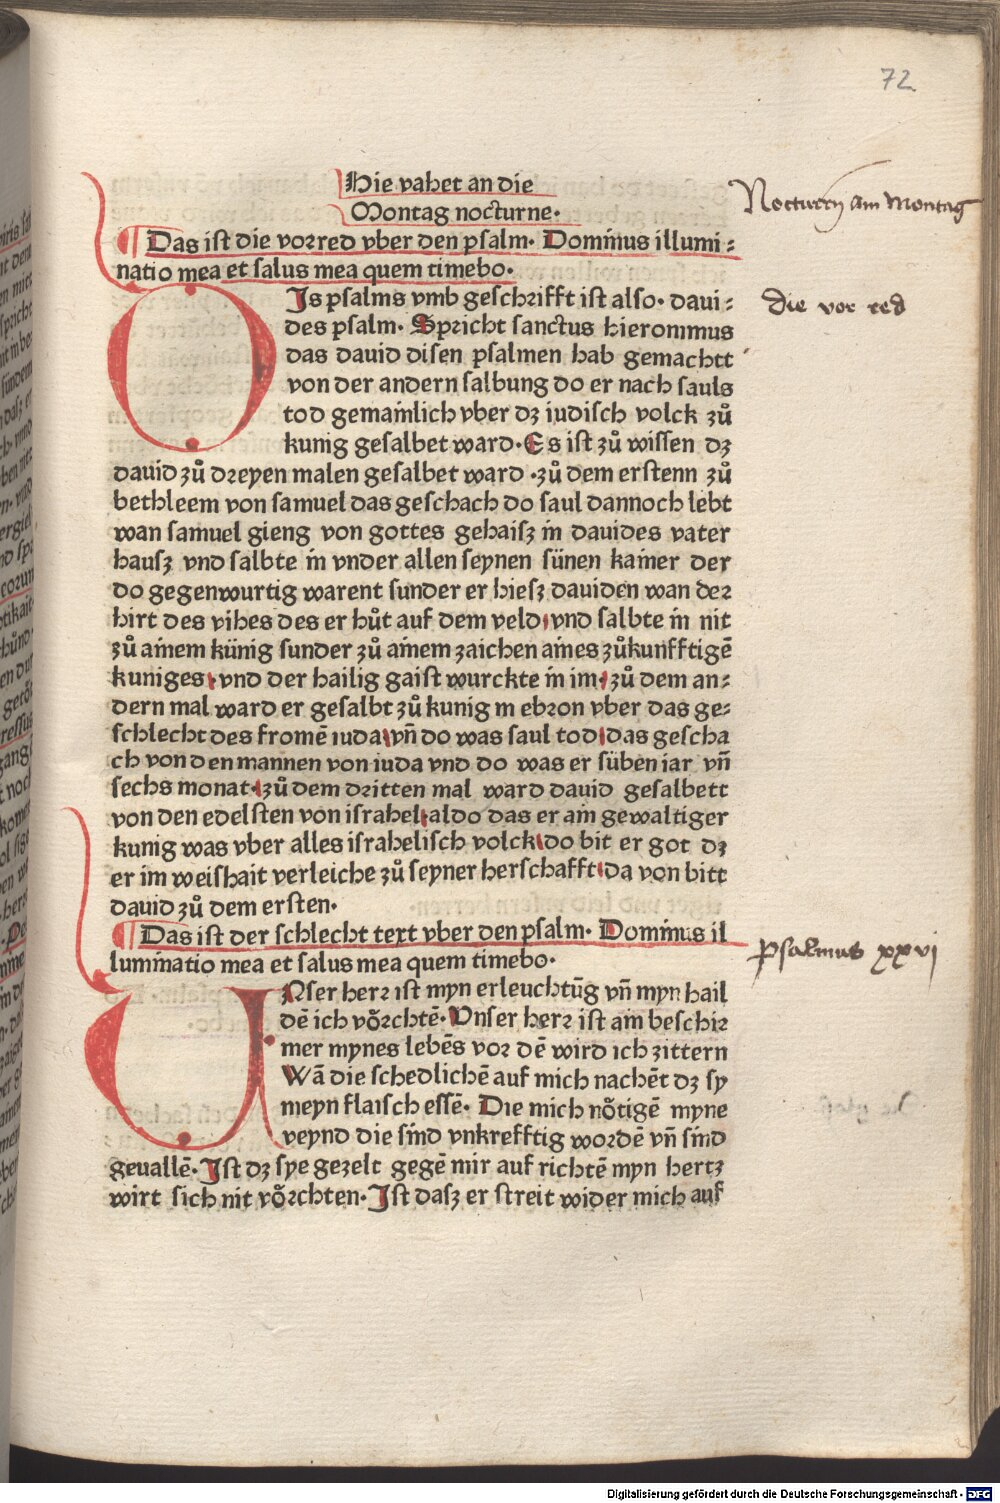 72
Hie vahet an die
Montag nocturne.
Nocturn am Montag
Das ist die vorred vber den psalm. Dominus illumi-
natio mea et salus mea quem timebo.
die vor red
DIs psalms vmb geschrifft ist also. davi-
des psalm. Spricht sanctus hieronimus
das dauid disen psalmen hab gemachtt
von der andern salbung do er nach sauls
tod gemainlich vber dz iudisch volck zů
kunig gesalbet ward. Es ist zů wissen dz
dauid zů dreyen malen gesalbet ward .zů dem erstenn zů
bethleem von samuel das geschach do saul dannoch lebt
wan samuel gieng von gottes gehaisz in dauides vater
hausz vnd salbte in vnder allen seynen sünen kainer der
do gegenwurtig warent sunder er hiesz dauiden wan der
hirt des vihes des er hůt auf dem veld vnd salbte in nit
zů ainem künig sunder zů ainem zaichen aines zůkunfftigē
kuniges vnd der hailig gaist wurckte in im. zů dem an-
dern mal ward er gesalbt zů kunig in ebron vber das ge-
schlecht des fromē iuda vn̄ do was saul tod das gescha
ch von den mannen von iuda vnd do was er süben iar vn̄
sechs monat. zů dem dritten mal ward dauid gesalbett
von den edelsten von israhel aldo das er ain gewaltiger
kunig was vber alles israhelisch volck do bit er got dz
er im weishait verleiche zů seyner herschafft da von bitt
dauid zů dem ersten.
Das ist der schlecht text vber den psalm. Dominus il
luminatio mea et salus mea quem timebo.
Psalmus xxvi
VNser herr ist myn erleuchtūg vn̄ myn hail
dē ich vörchtē. Vnser herr ist ain beschir
mer mynes lebēs vor dē wird ich zittern
Wā die schedlichē auf mich nachēt dz sy
meyn flaisch essē. Die mich nötigē myne
veynd die sind vnkrefftig wordē vn̄ sind
geuallē. Ist dz sye gezelt gegē mir auf richtē myn hertz
wirt sich nit vörchten. Ist dasz er streit wider mich auf
Digitalisierung gefördert durch die Deutsche Forschungsgemeinschaft - DFG